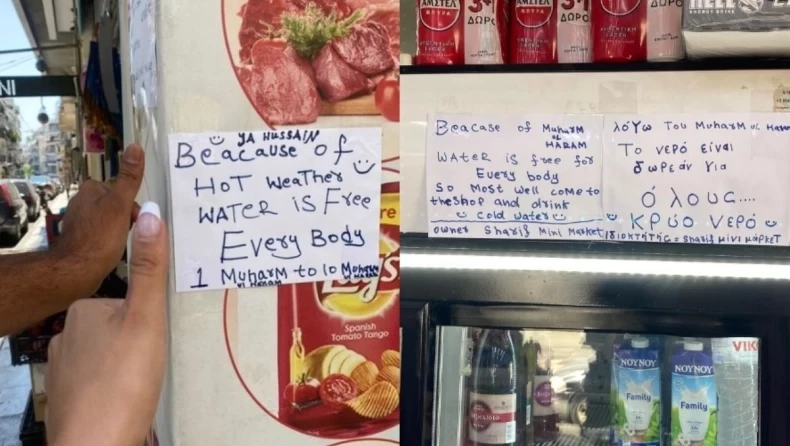 NI
YA HUSSAIN
Beacause of
HOT weather
WATER is Free
Every Body
1 Muharm to 10 Muharm
ul HARAM
Lay's
Spanish
Tomato Tango
ΑΜΣΤΕΛ
3+1
ΔΩΡΟ
ΑΜΣΤΕΛ
3+1
ΔΩΡΟ
ΔΩΡΟ
HELL
ENERGY DRINK
Beacase of Muharm
ul HARAM
WATER is free for
Every body
So Most well come to
the shop and drink
cold water
owner Sharif Mini Market
λόγω του Muharm ul Haram
Το νερό είναι
δωρεάν για
όλους....
Κρύο νερό
ιδιοκτήτης = sharif μίνι μάρκετ
VIK
ΝΟΥΝΟΥ
Family
ΝΟΥΝΟΥ
Family